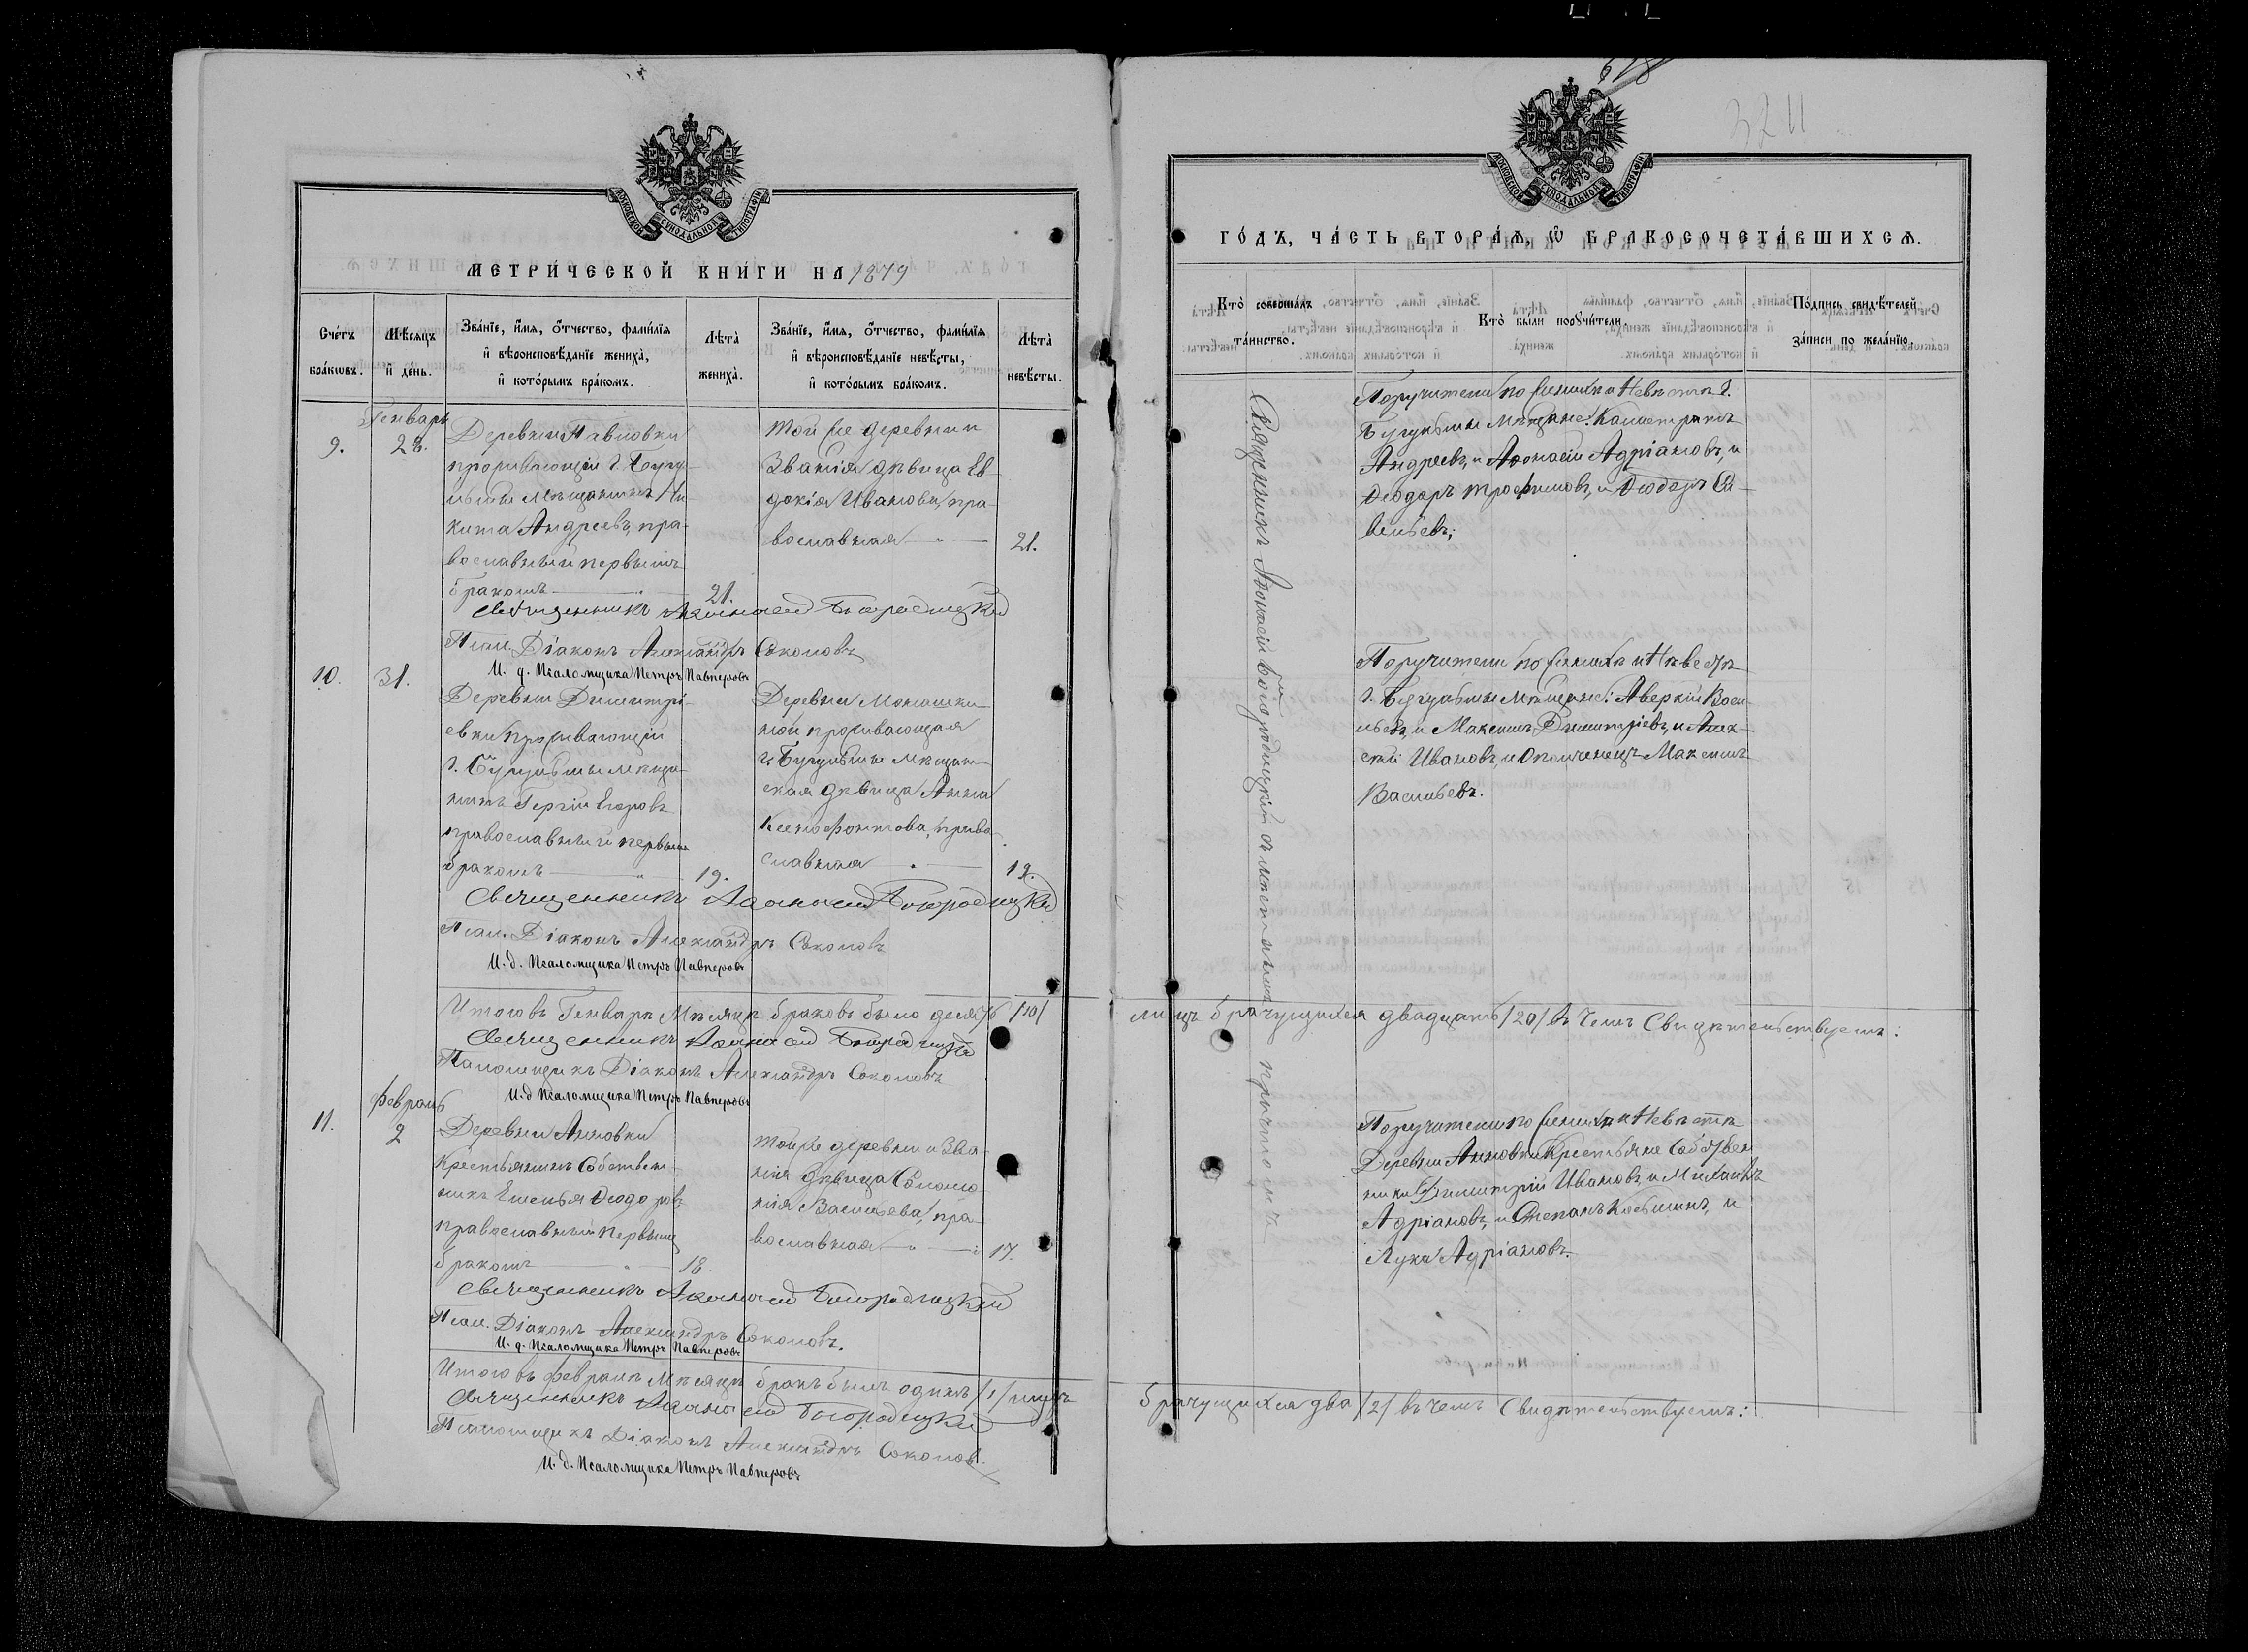 618
МОСКОВСКОЙ СѴНОДАЛЬНОЙ ТИПОГРАФІИ
МЕТРИ́ЧЕСКОЙ КНИ́ГИ НА 1879
Сче́тъ бра́кѡвъ.
Мѣ́сяцъ и҆ де́нь.
Зва́нїе, и҆́мя, ѻ҆́тчество, фами́лїя
и҆ вѣроисповѣ́данїе жениха̀,
и҆ кото́рымъ бра́комъ.
Лѣта̀ жениха̀.
Зва́нїе, и҆́мя, ѻ҆́тчество, фами́лїя
и҆ вѣроисповѣ́данїе невѣ́сты,
и҆ кото́рымъ бра́комъ.
Лѣта̀ невѣ́сты.
Генварь
9.
28.
Деревни Павловки
проживающій г. Бугу-
льмы мѣщанинъ Ни-
кита Андреевъ, пра-
вославный первымъ
бракомъ
21.
Той же деревни и
званія дѣвица Ев-
докія Иванова, пра-
вославная
21.
Священникъ Аѳанасій Богородицкій
Псал. Діаконъ Александръ Соколовъ
И. д. Псаломщика Петръ Павперовъ
10.
31.
Деревни Димитрі-
евки проживающій
г. Бугульмы мѣща-
нинъ Егоровъ
православный первымъ
бракомъ
19.
Деревни Монашки-
ной проживающая
г. Бугульмы мѣщан-
ская дѣвица Анна
Ксенофонтова, право-
славная
19.
Священникъ Аѳанасій Богородицкій
Псал. Діаконъ Александръ Соколовъ
И. д. Псаломщика Петръ Павперовъ
Итого въ Генварѣ мѣсяцѣ браковъ было десять /10/
Священникъ Аѳанасій Богородицкій
Псаломщикъ Діаконъ Александръ Соколовъ
И. д. Псаломщика Петръ Павперовъ
Февраль
11.
2
Деревни Анновки
Крестьянинъ Собствен-
никъ Емельян Ѳеодоровъ,
православный первымъ
бракомъ
18.
Той же деревни и зва-
нія дѣвица Соломо-
нія Васильева, пра-
вославная
17.
Священникъ Аѳанасій Богородицкій
Псал. Діаконъ Александръ Соколовъ.
И. д. Псаломщика Петръ Павперовъ
Итого въ Февралѣ мѣсяцѣ бракъ былъ одинъ /1/ лицъ
Священникъ Аѳанасій Богородицкій
Псаломщикъ Діаконъ Александръ Соколовъ.
И. д. Псаломщика Петръ Павперовъ
МОСКОВСКОЙ СѴНОДАЛЬНОЙ ТИПОГРАФІИ
ГО́ДЪ, ЧА́СТЬ ВТОРА́Я, Ѡ҆ БРАКОСОЧЕТА́ВШИХСЯ.
Кто̀ соверша́лъ
та́инство.
Кто̀ бы́ли порꙋчи́тели.
По́дпись свидѣ́телей
за́писи по жела́нїю.
Священникъ Аѳонасій Богородицкій съ причтомъ
Поручители по женихѣ и Невѣстѣ г.
Бугульмы мѣщане:
Андреевъ, и Аѳонасій Адріановъ, и
Ѳеодоръ Трофимовъ, и Ѳеодоръ Са-
вельевъ;
Поручители по женихѣ и Невѣстѣ
г. Бугульмы мѣщане: Аверкій Васи-
льевъ, и Максимъ Димитріевъ, и Алек-
сѣй Ивановъ, и Ополченецъ Максимъ
Васильевъ.
лицъ брачущихся двадцать /20/ въ чемъ Свидѣтельствуемъ:
Поручители по женихѣ и Невѣстѣ
Деревни Анновки Крестьяне Собствен-
ники Димитрій Ивановъ, и Михаилъ
Адріановъ, и Степанъ и
Лука Адріановъ.
брачущихся два /2/ въ чемъ Свидѣтельствуемъ: